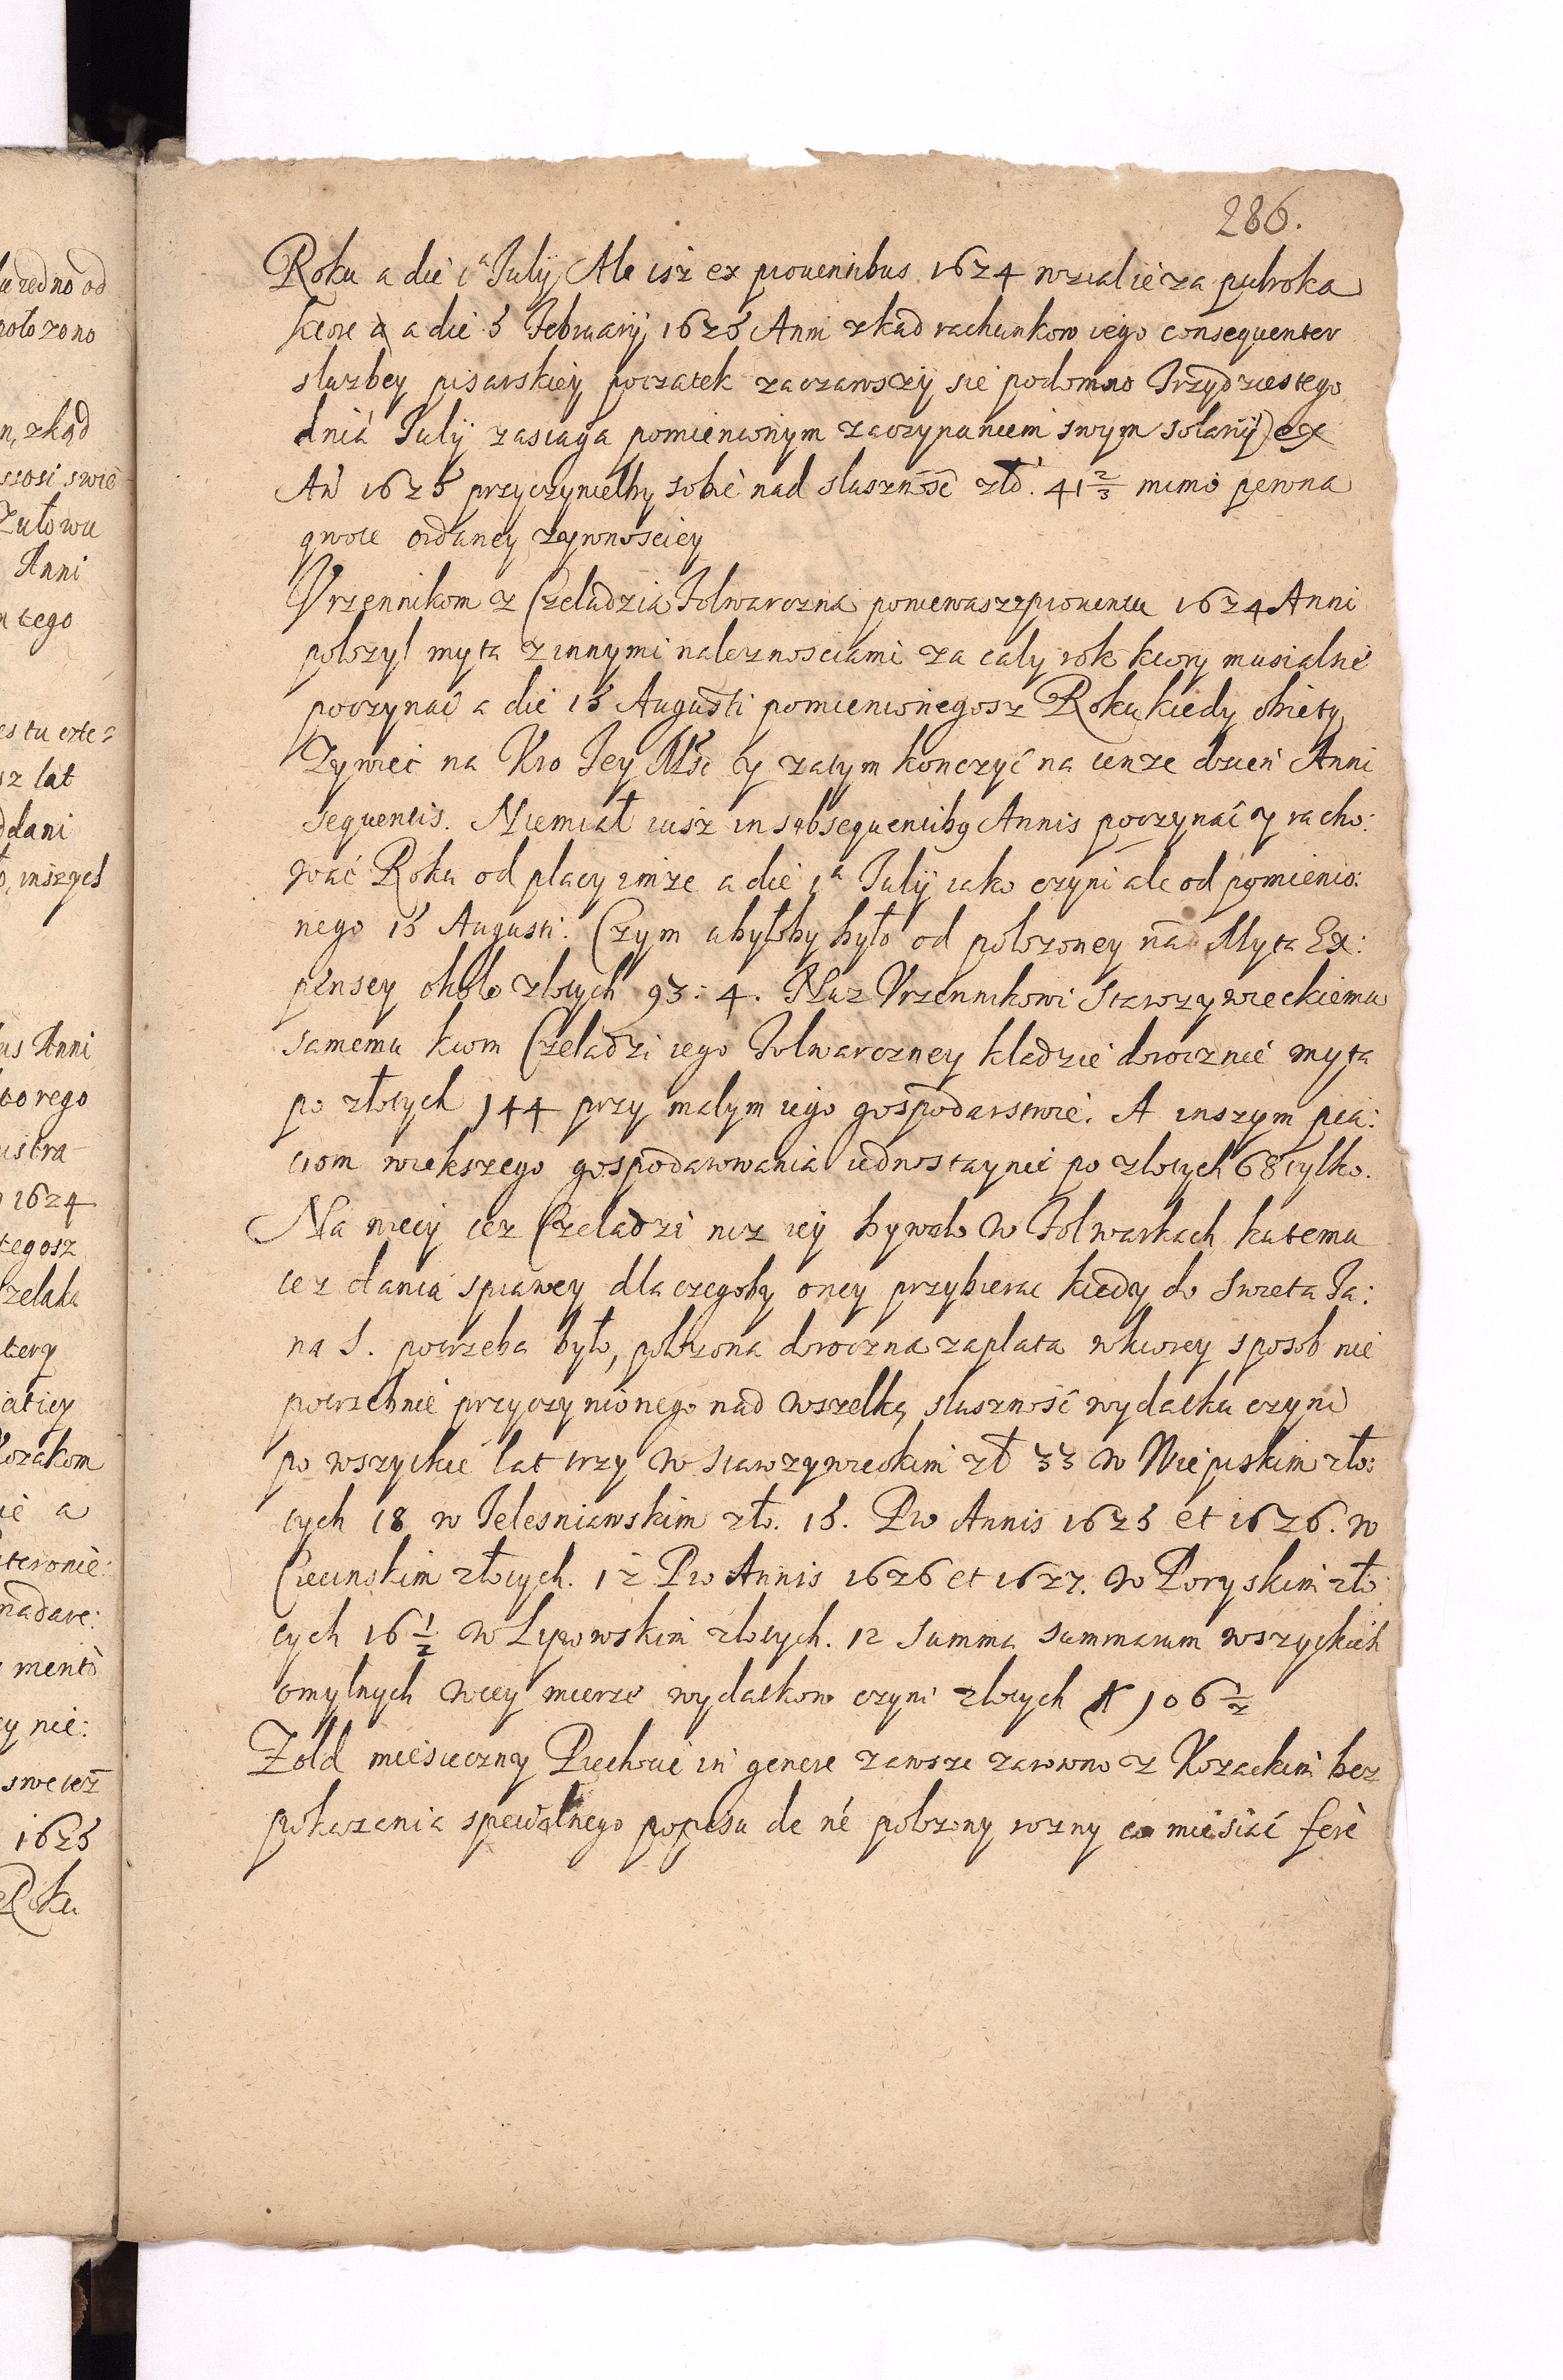 286.
Roku a die 1ª Julij Ale isz ex prouentibus 1624 wzial ie za pulroka
ktore a die 5 Februarij 1625 Anni zkad rachunkow iego consequenter
sluzbey pisarskiey poczatek zaczawszy sie podomno Trzydziestego
dnia Julij zasiaga pomienionym zaczynaniem swym solarij ex
An 1625 przyczynielby sobie nad slusznosc zło. 41 2/3 mimo pewna
qwote oddaney zywnosciey
Vrzennikom z Czeladzia Folwarczna poniewasz z prouentu 1624 Anni
polozyl myta z innymi naleznosciami za caly rok ktory musialsie
poczynac a die 15 Augusti pomienionegosz Roku kiedy obiety
Zywiec na Kro Jey Mść y zatym konczyć na tenze dzien Anni
sequentis. Niemiał iusz in subsequentibq Annis poczynać y racho:
wać Roku od placy imze a die 1ª Julij iako czyni ale od pomienio:
nego 15 Augusti. Czym ubyłoby było od polozoney na Myta Ex:
pensey okolo zlotych 93: 4. Nuz Vrzennikowi Starozywieckiemu
samemu krom Czeladzi iego Folwarczney kladzie dorocznie myta
po złotych 144 przy malym iego gospodarstwie. A inszym pia:
ciom wiekszego gospodarowania iednostaynie po zlotych 68 tylko.
Na wiecy tez Czeladzi niz iey bywalo w Folwarkach ku temu
tez dania sprawey dla czegoby oney przybierac kiedy do Swieta Ja:
na S. potrzeba było, polozona doroczna zaplata wktorey sposob nie
potrzebnie przyczynionego nad wszelką slusznosć wydatku czyni
po wszytkie lat trzy w Starozywieckim zł 33 w Wiepiskim zło:
tych 18 w Jelesniawskim zło. 15. Pro Annis 1625 et 1626. w
Ciecinskim złotych. 12 Pro Annis 1626 et 1627. w Poryskim zło:
tych 16 1/2 w Lipowskim zlotych. 12 Summa summarum wszytkich
omylnych w tey mierze wydatkow czyni zlotych 106 1/2
Zold miesieczny Piechocie in genere zawsze zarowno z Kozackim bez
pokazania specialnego popisu de né polozony rozny co miesiać ferè